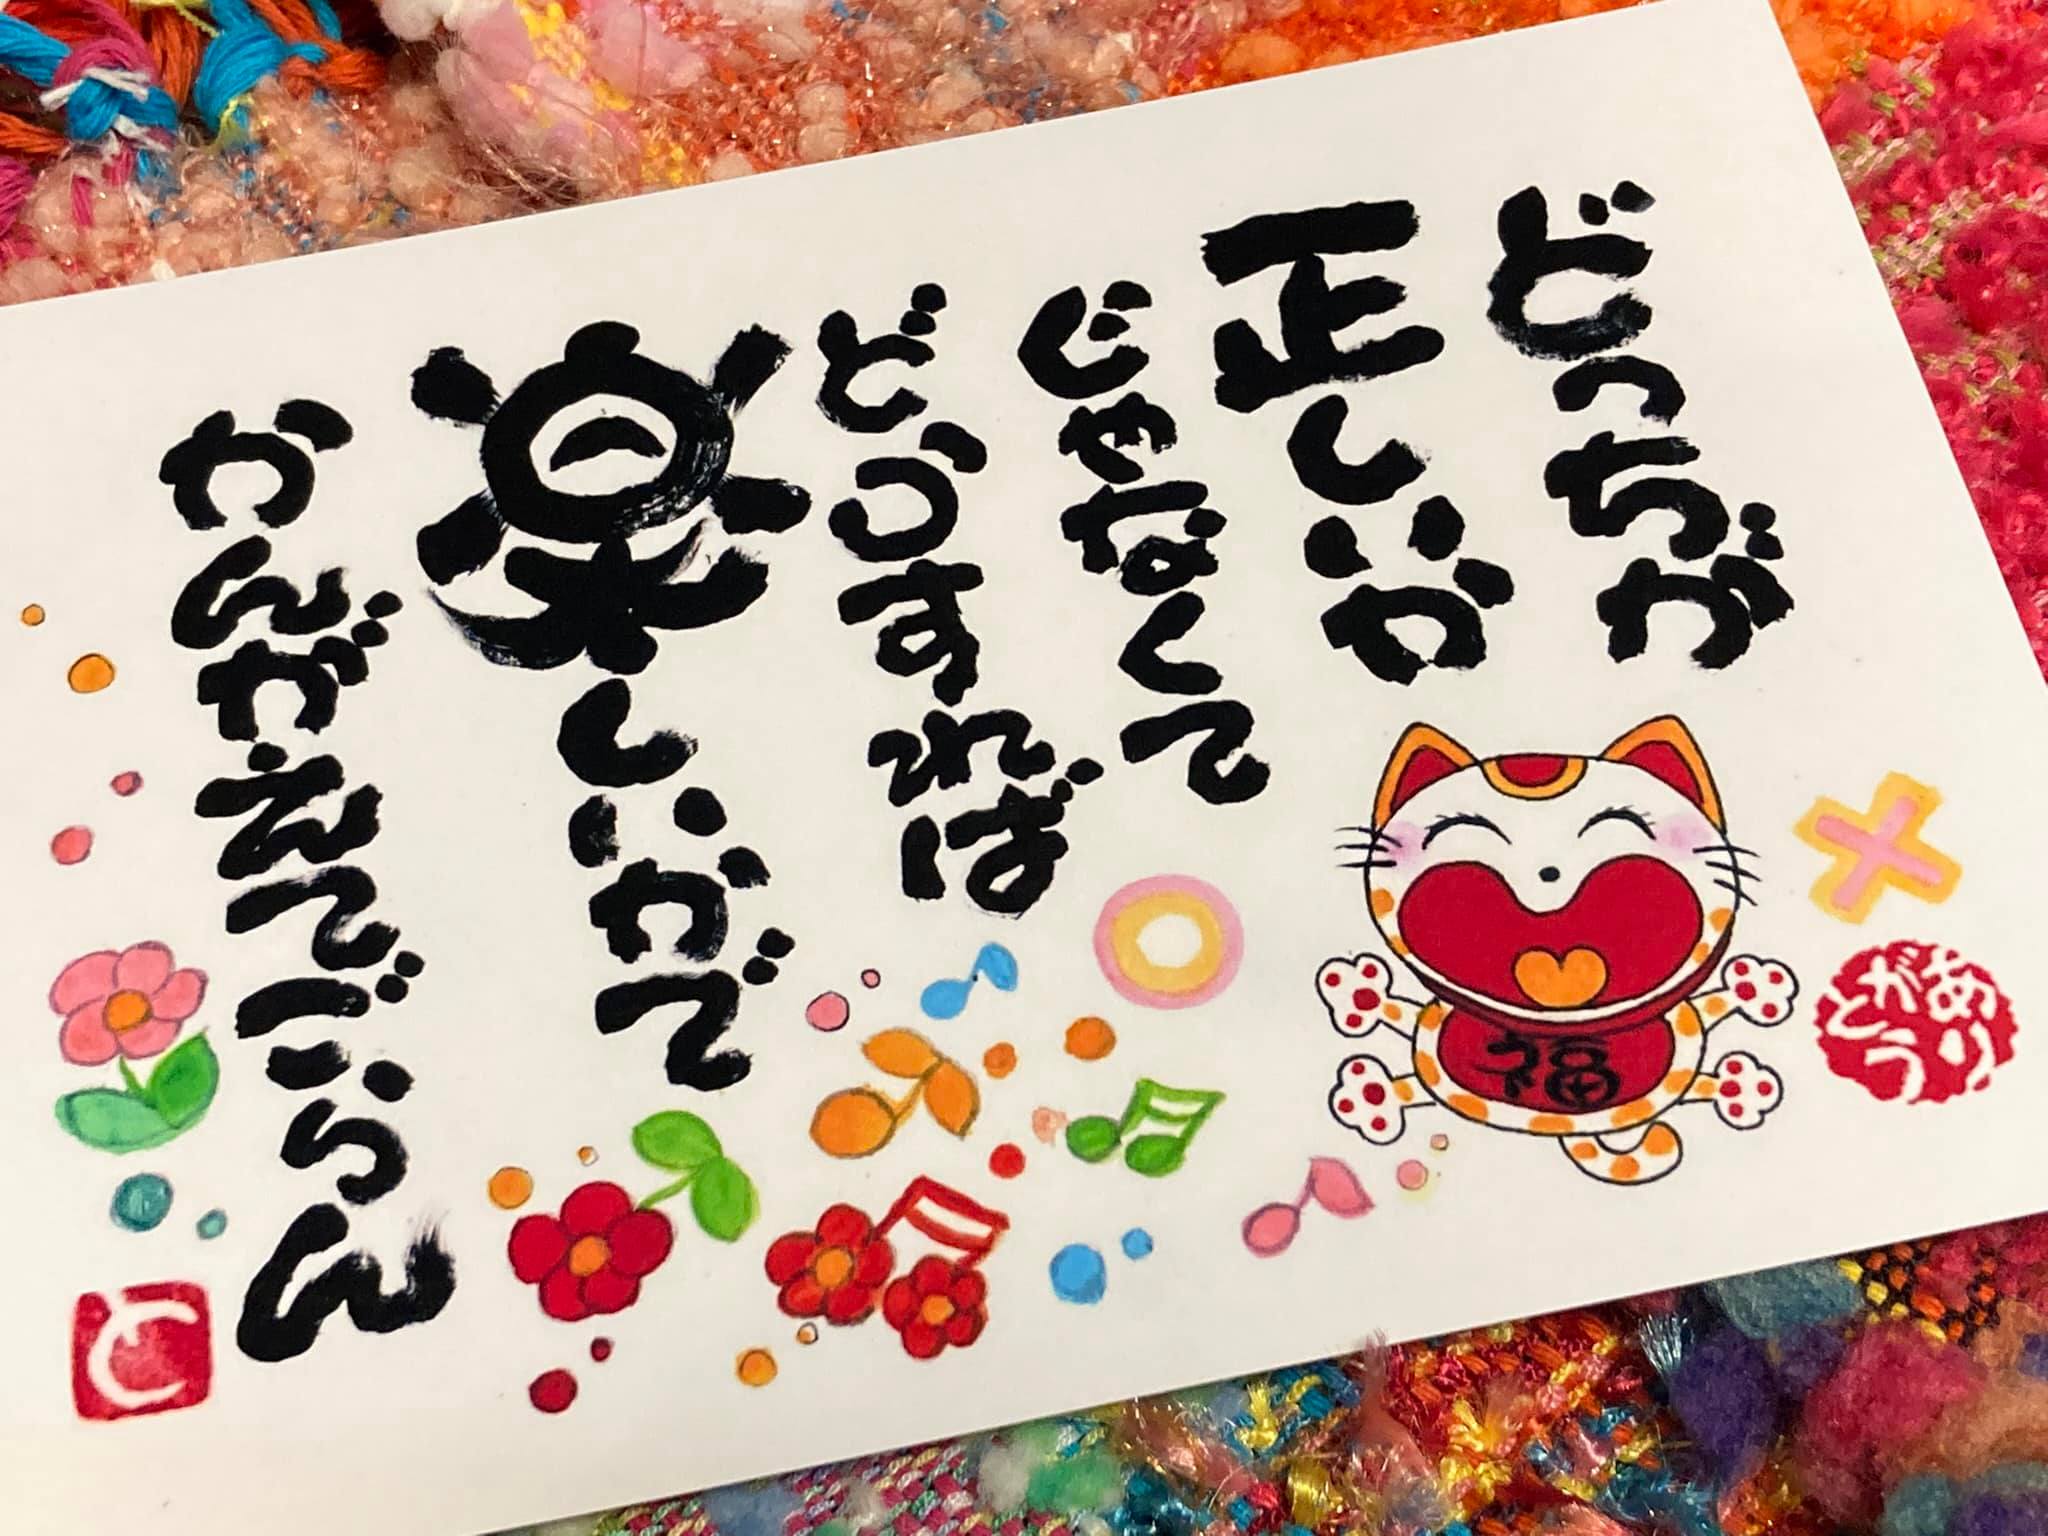 どっちが
正しいか
じゃなくて
どうすれば
楽しいかで
かんがえてごらん
福
ありがとう
と